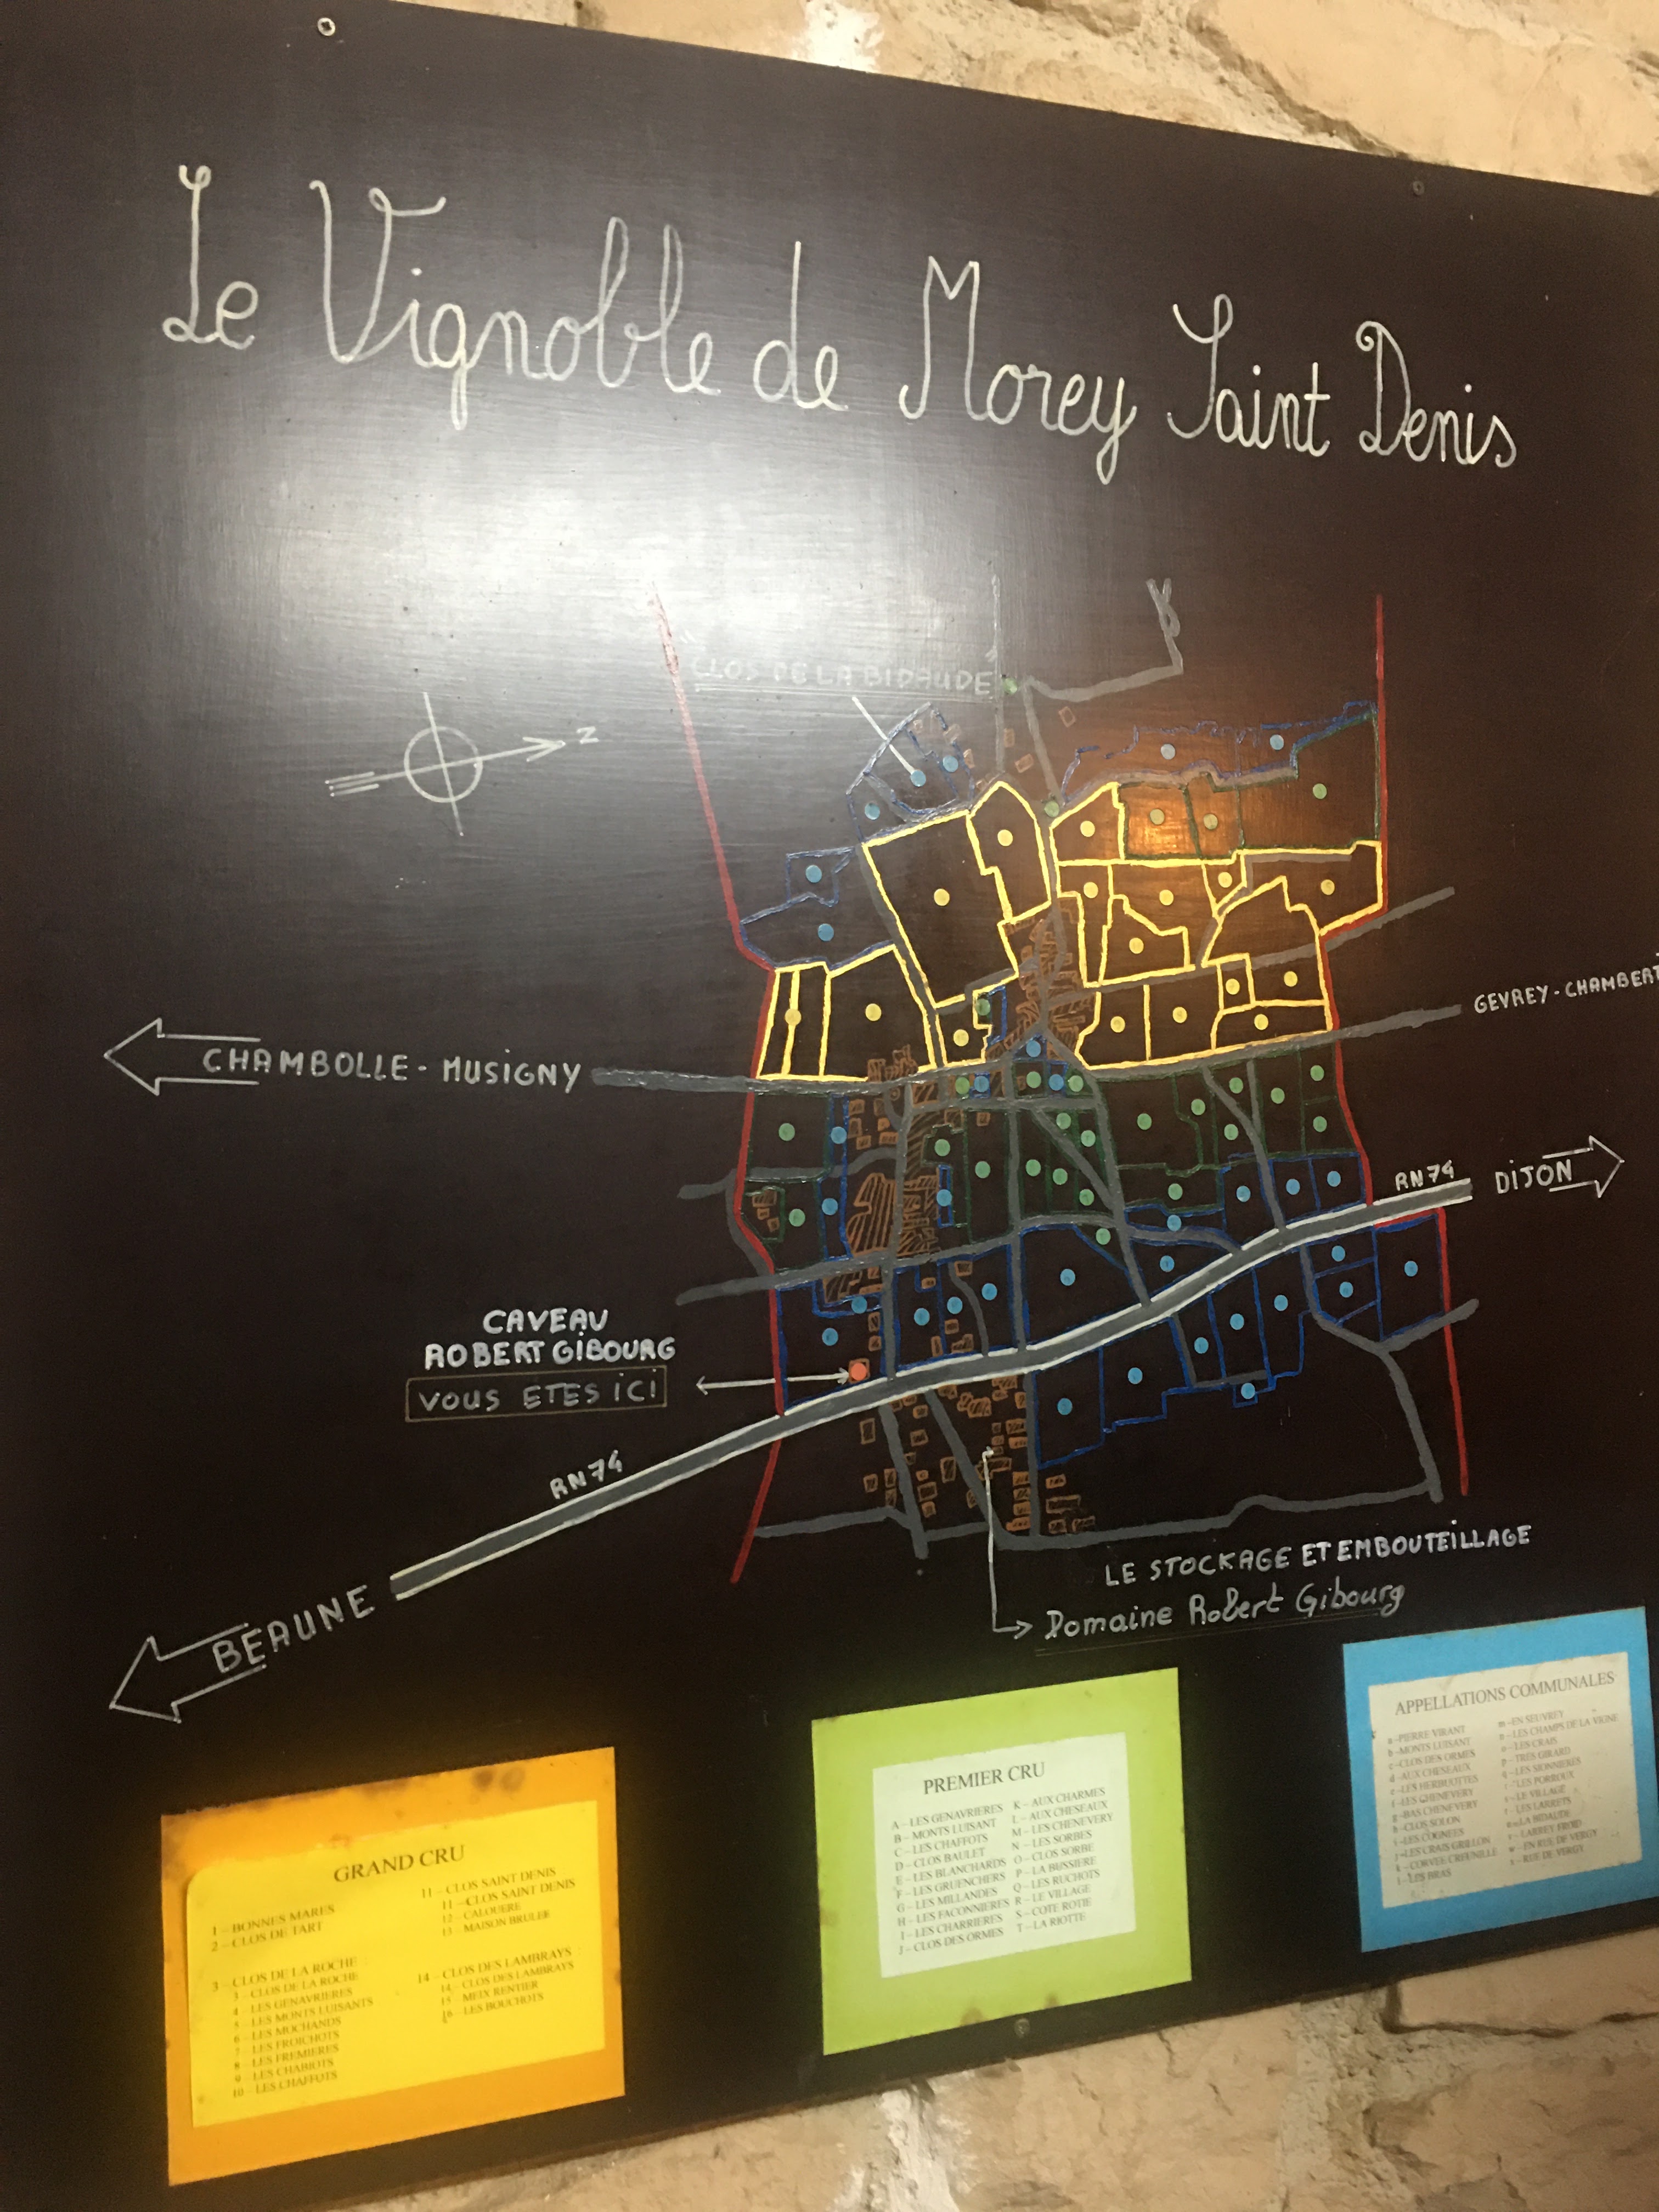 Le Vignoble de Morey Saint Denis
CLOS DE LA BIDAUDE
Z
GEVREY-CHAMBERT
CHAMBOLLE-MUSIGNY
RN74
DIJON
CAVEAU
ROBERT GIBOURG
VOUS ETES ICI
RN74
BEAUNE
LE STOCKAGE ET EMBOUTEILLAGE
Domaine Robert Gibourg
GRAND CRU
1 – BONNES MARES
2 – CLOS DE TART
3 – CLOS DE LA ROCHE
3 – CLOS DE LA ROCHE
4 – LES GENAVRIERES
5 – LES MONTS LUISANTS
6 – LES MOCHANDS
7 – LES FROICHOTS
8 – LES FREMIERES
9 – LES CHABIOTS
10 – LES CHAFFOTS
11 – CLOS SAINT DENIS
11 – CLOS SAINT DENIS
12 – CALOUERE
13 – MAISON BRULEE
14 – CLOS DES LAMBRAYS
14 – CLOS DES LAMBRAYS
15 – MEIX RENTIER
16 – LES BOUCHOTS
PREMIER CRU
A – LES GENAVRIERES
B – MONTS LUISANT
C – LES CHAFFOTS
D – CLOS BAULET
E – LES BLANCHARDS
F – LES GRUENCHERS
G – LES MILLANDES
H – LES FACONNIERES
I – LES CHARRIERES
J – CLOS DES ORMES
K – AUX CHARMES
L – AUX CHESEAUX
M – LES CHENEVERY
N – LES SORBES
O – CLOS SORBE
P – LA BUSSIERE
Q – LES RUCHOTS
R – LE VILLAGE
S – COTE ROTIE
T – LA RIOTTE
APPELLATIONS COMMUNALES
a – PIERRE VIRANT
b – MONTS LUISANT
c – CLOS DES ORMES
d – AUX CHESEAUX
e – LES HERBUOTTES
f – LES CHENEVERY
g – BAS CHENEVERY
h – CLOS SOLON
i – LES COGNEES
j – LES CRAIS GRILLON
k – CORVEE CREUNILLE
l – LES BRAS
m – EN SEUVREY
n – LES CHAMPS DE LA VIGNE
o – LES CRAIS
p – TRES GIRARD
q – LES SIONNIERES
r – LES PORROUX
s – LE VILLAGE
t – LES LARRETS
u – LA BIDAUDE
v – LARREY FROID
w – EN RUE DE VERGY
x – RUE DE VERGY